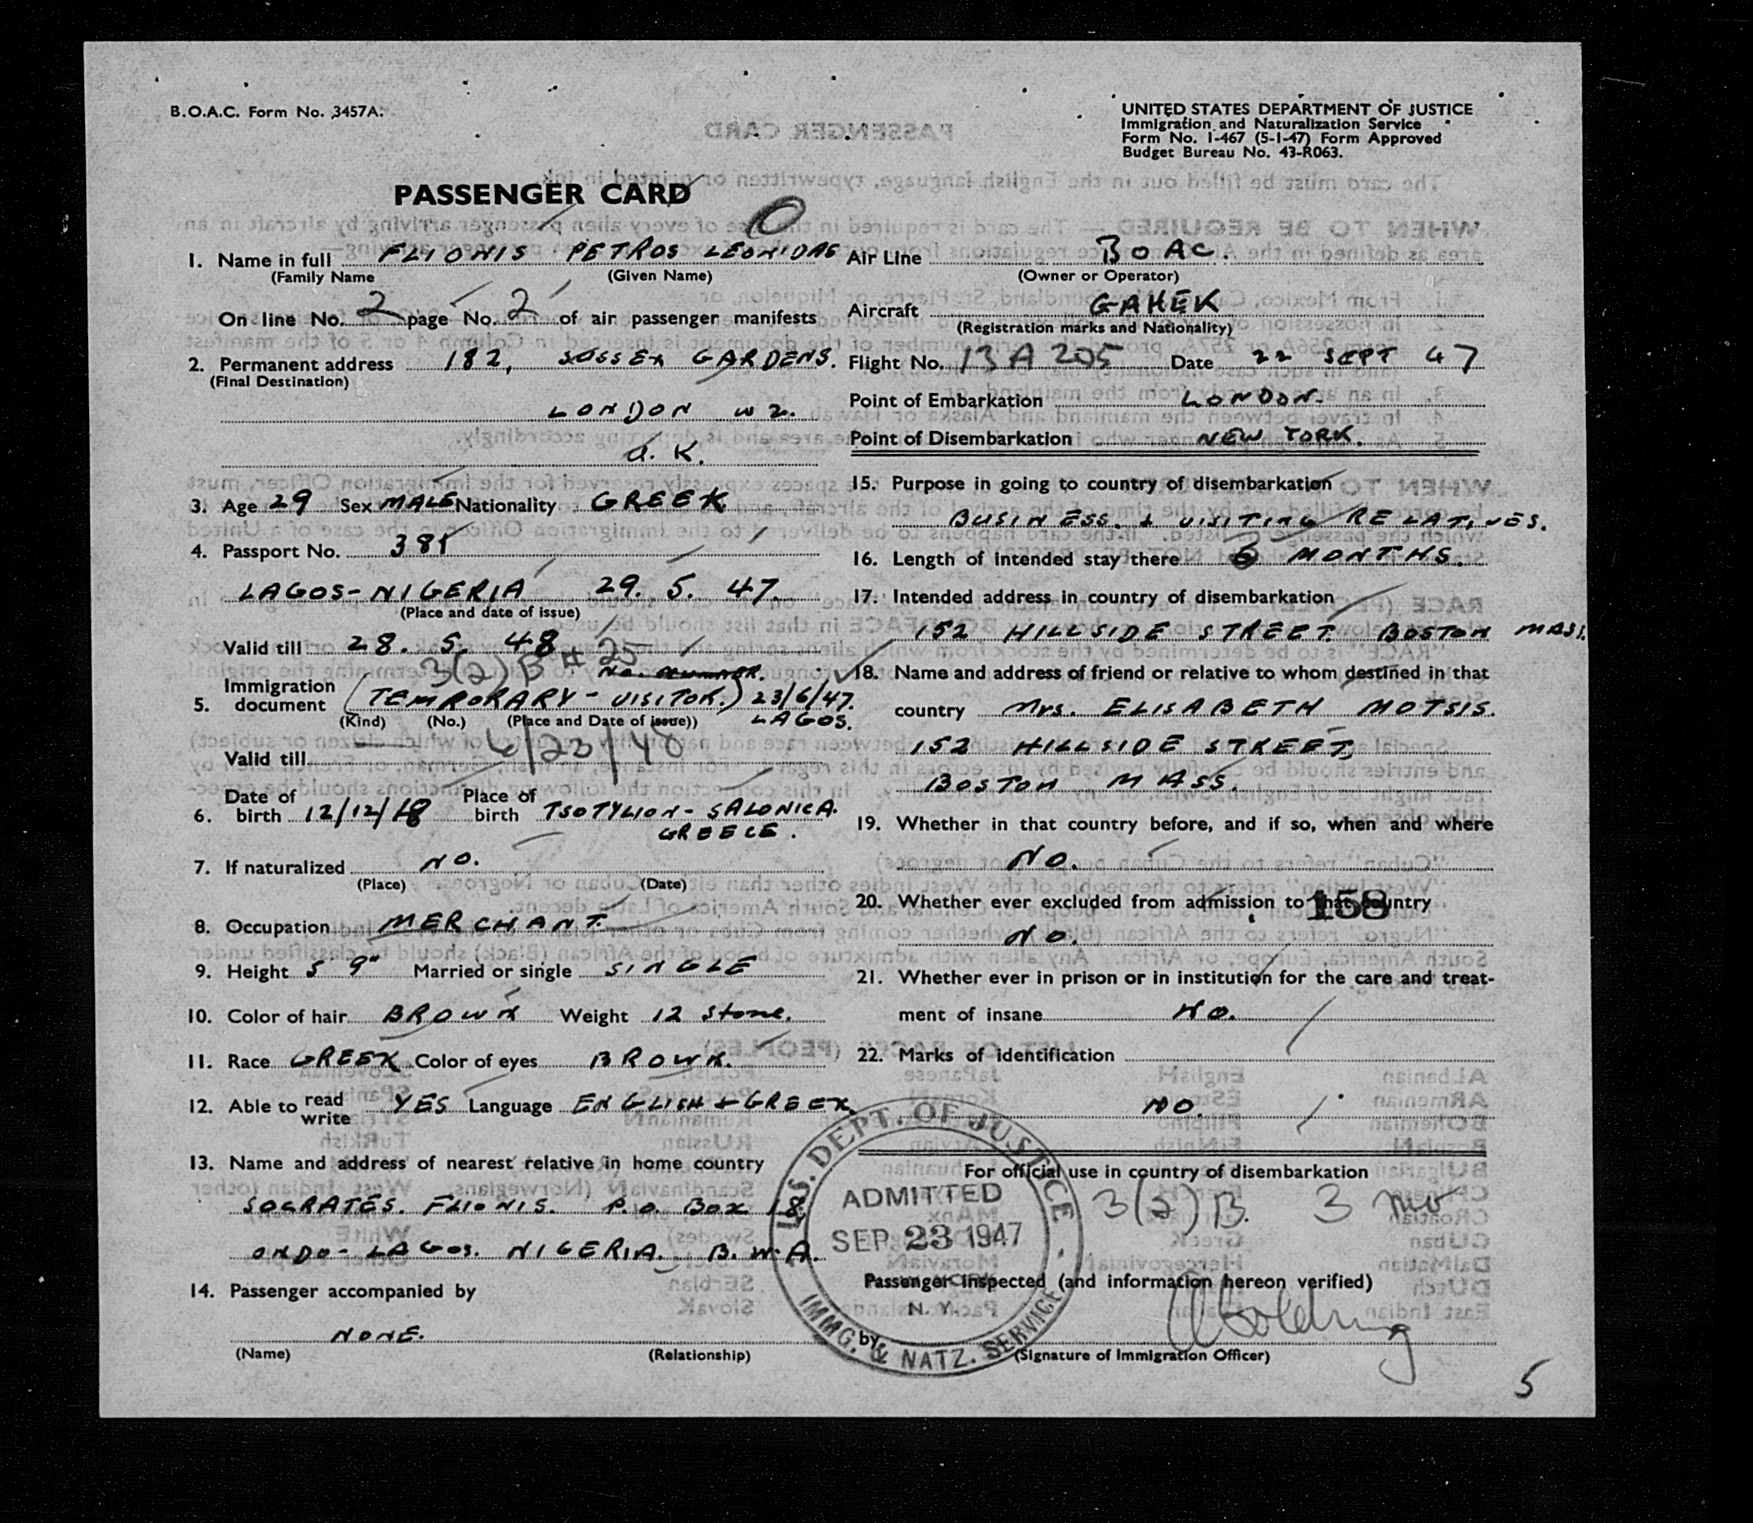 B.O.A.C. Form No. 3457A.
UNITED STATES DEPARTMENT OF JUSTICE
Immigration and Naturalization Service
Form No. I-467 (5-1-47) Form Approved
Budget Bureau No. 43-R063.
PASSENGER CARD
1. Name in full FLIONIS PETROS LEONIDAS
(Family Name (Given Name)
On line No. 2 page No. 2 of air passenger manifests
2. Permanent address 182, SUSSEX GARDENS.
(Final Destination)
LONDON W2.
U.K.
3. Age 29 Sex MALE Nationality GREEK
4. Passport No. 381
LAGOS-NIGERIA 29. 5. 47.
(Place and date of issue)
Valid till 28. 5. 48
3(2) B # 25
No.
5. Immigration document (TEMPORARY-VISITOR.) 23/6/47.
(Kind) (No.) (Place and Date of issue)) LAGOS.
Valid till 6/23/48
6. Date of birth 12/12/18 Place of birth TSOTYLION-SALONICA.
GREECE.
7. If naturalized NO.
(Place) (Date)
8. Occupation MERCHANT.
9. Height 5 9" Married or single SINGLE
10. Color of hair BROWN Weight 12 Stone.
11. Race GREEK Color of eyes BROWN.
12. Able to read write YES Language ENGLISH + GREEK
13. Name and address of nearest relative in home country
SOCRATES. FLIONIS. P.O. Box 18
ONDO-LAGOS. NIGERIA. B.W.A.
14. Passenger accompanied by
NONE.
(Name) (Relationship)
Air Line BOAC.
(Owner or Operator)
Aircraft GAHEK
(Registration marks and Nationality)
Flight No. 13A205 Date 22 SEPT 47
Point of Embarkation LONDON.
Point of Disembarkation NEW YORK.
15. Purpose in going to country of disembarkation
BUSINESS. & VISITING RELATIVES.
16. Length of intended stay there 6 MONTHS.
17. Intended address in country of disembarkation
152 HILLSIDE STREET BOSTON MASS.
18. Name and address of friend or relative to whom destined in that
country Mrs. ELISABETH MOTSIS.
152 HILLSIDE STREET,
BOSTON MASS.
19. Whether in that country before, and if so, when and where
NO.
20. Whether ever excluded from admission to that country
158
NO.
21. Whether ever in prison or in institution for the care and treat-
ment of insane NO.
22. Marks of identification
NO.
For official use in country of disembarkation
3(2) B. 3 mo
U.S. DEPT. OF JUSTICE
ADMITTED
SEP 23 1947
N. Y.
IMMG. & NATZ. SERVICE
Passenger inspected (and information hereon verified)
by
(Signature of Immigration Officer)
5